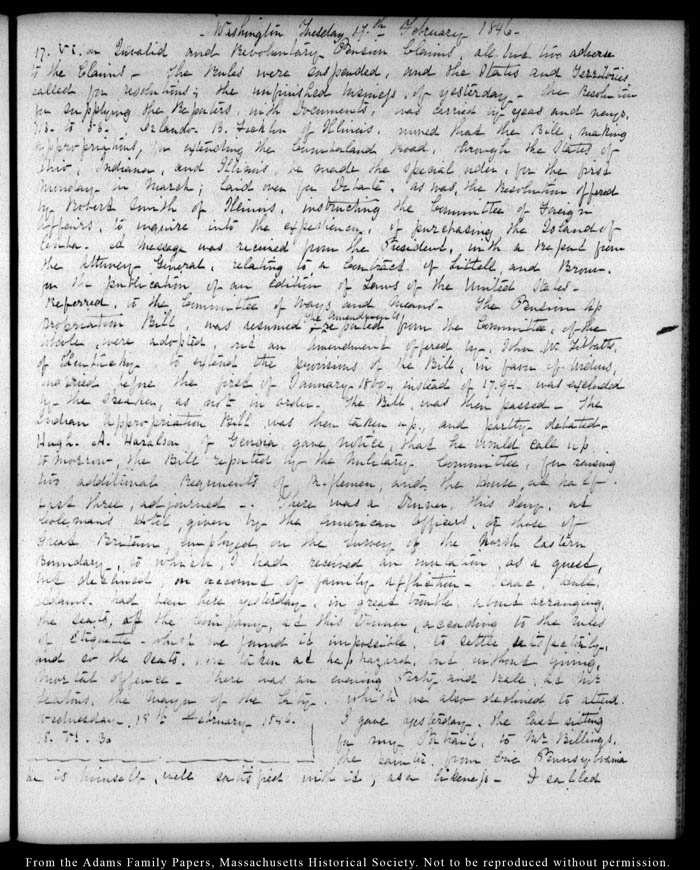 - Washington Tuesday 17.th February 1846 -
17. VI. on Invalid and Revolutionary Pension Claims, all but two adverse
to the Claims - The Rules were suspended, and the States and Territories
called for resolutions; the unfinished business, of yesterday - the Resolution
for supplying the Reporters, with Documents, was carried by yeas and nays,
to 58. Orlando B. Ficklin of Illinois, moved that the Bill, making
appropriations, for extending the Cumberland road, through the States of
Ohio, Indiana, and Illinois, be made the special order, for the first
Monday in March; laid over for Debate, as was, the Resolution offered
by Robert Smith of Illinois, instructing the Committee of Foreign
Affairs, to inquire into the expediency, of purchasing the Island of
Cuba. A Message was received from the President, with a Report from
the Attorney General, relating to a contract, of Little, and Brown.
for the publication of an Edition of Laws of the United States -
Referred, to the Committee of Ways and Means - The Pension Ap
propriation Bill, was resumed The amendments reported from the Committee, of the
whole, were adopted, but an amendment offered by, John W. Tibbatts,
of Kentucky, to extend the provisions of the Bill, in favor of widows,
married before the first of January 1800, instead of 1794. was excluded
by the Speaker, as not in order. The Bill, was then passed - The
Indian Appropriation Bill was then taken up, and partly debated -
Hugh A. Haralson, of Georgia, gave notice, that he would call up
to morrow, the Bill reported by the Military Committee, for raising
two additional Regiments of Riflemen, and the House, at half
past three, adjourned -. There was a Dinner, this day, at
Coleman's Hotel, given by the American Officers, to those of
Great Britain, employed on the survey of the North Eastern
Boundary, to which, I had received an invitation, as a guest,
but declined on account of family affliction - Isaac, Hull
Adams. had been here yesterday, in great trouble about arranging,
the seats, of the company, at this Dinner, according to the rules
of Etiquette - which we found it impossible, to settle, satisfactorily,
and so the seats, were taken at haphazard, but without giving,
mortal offence - There was an evening Party and Ball, at Mr
Seaton's, the Mayor of the City, which we also declined to attend.
Wednesday 18.th February 1846. I gave yesterday, the last sitting
18. VI. 30 for my Portrait, to Mr Billings,
the painter, from Erie Pennsylvania
he is himself, well satisfied with it, as a likeness - I called
From the Adams Family Papers, Massachusetts Historical Society. Not to be reproduced without permission.